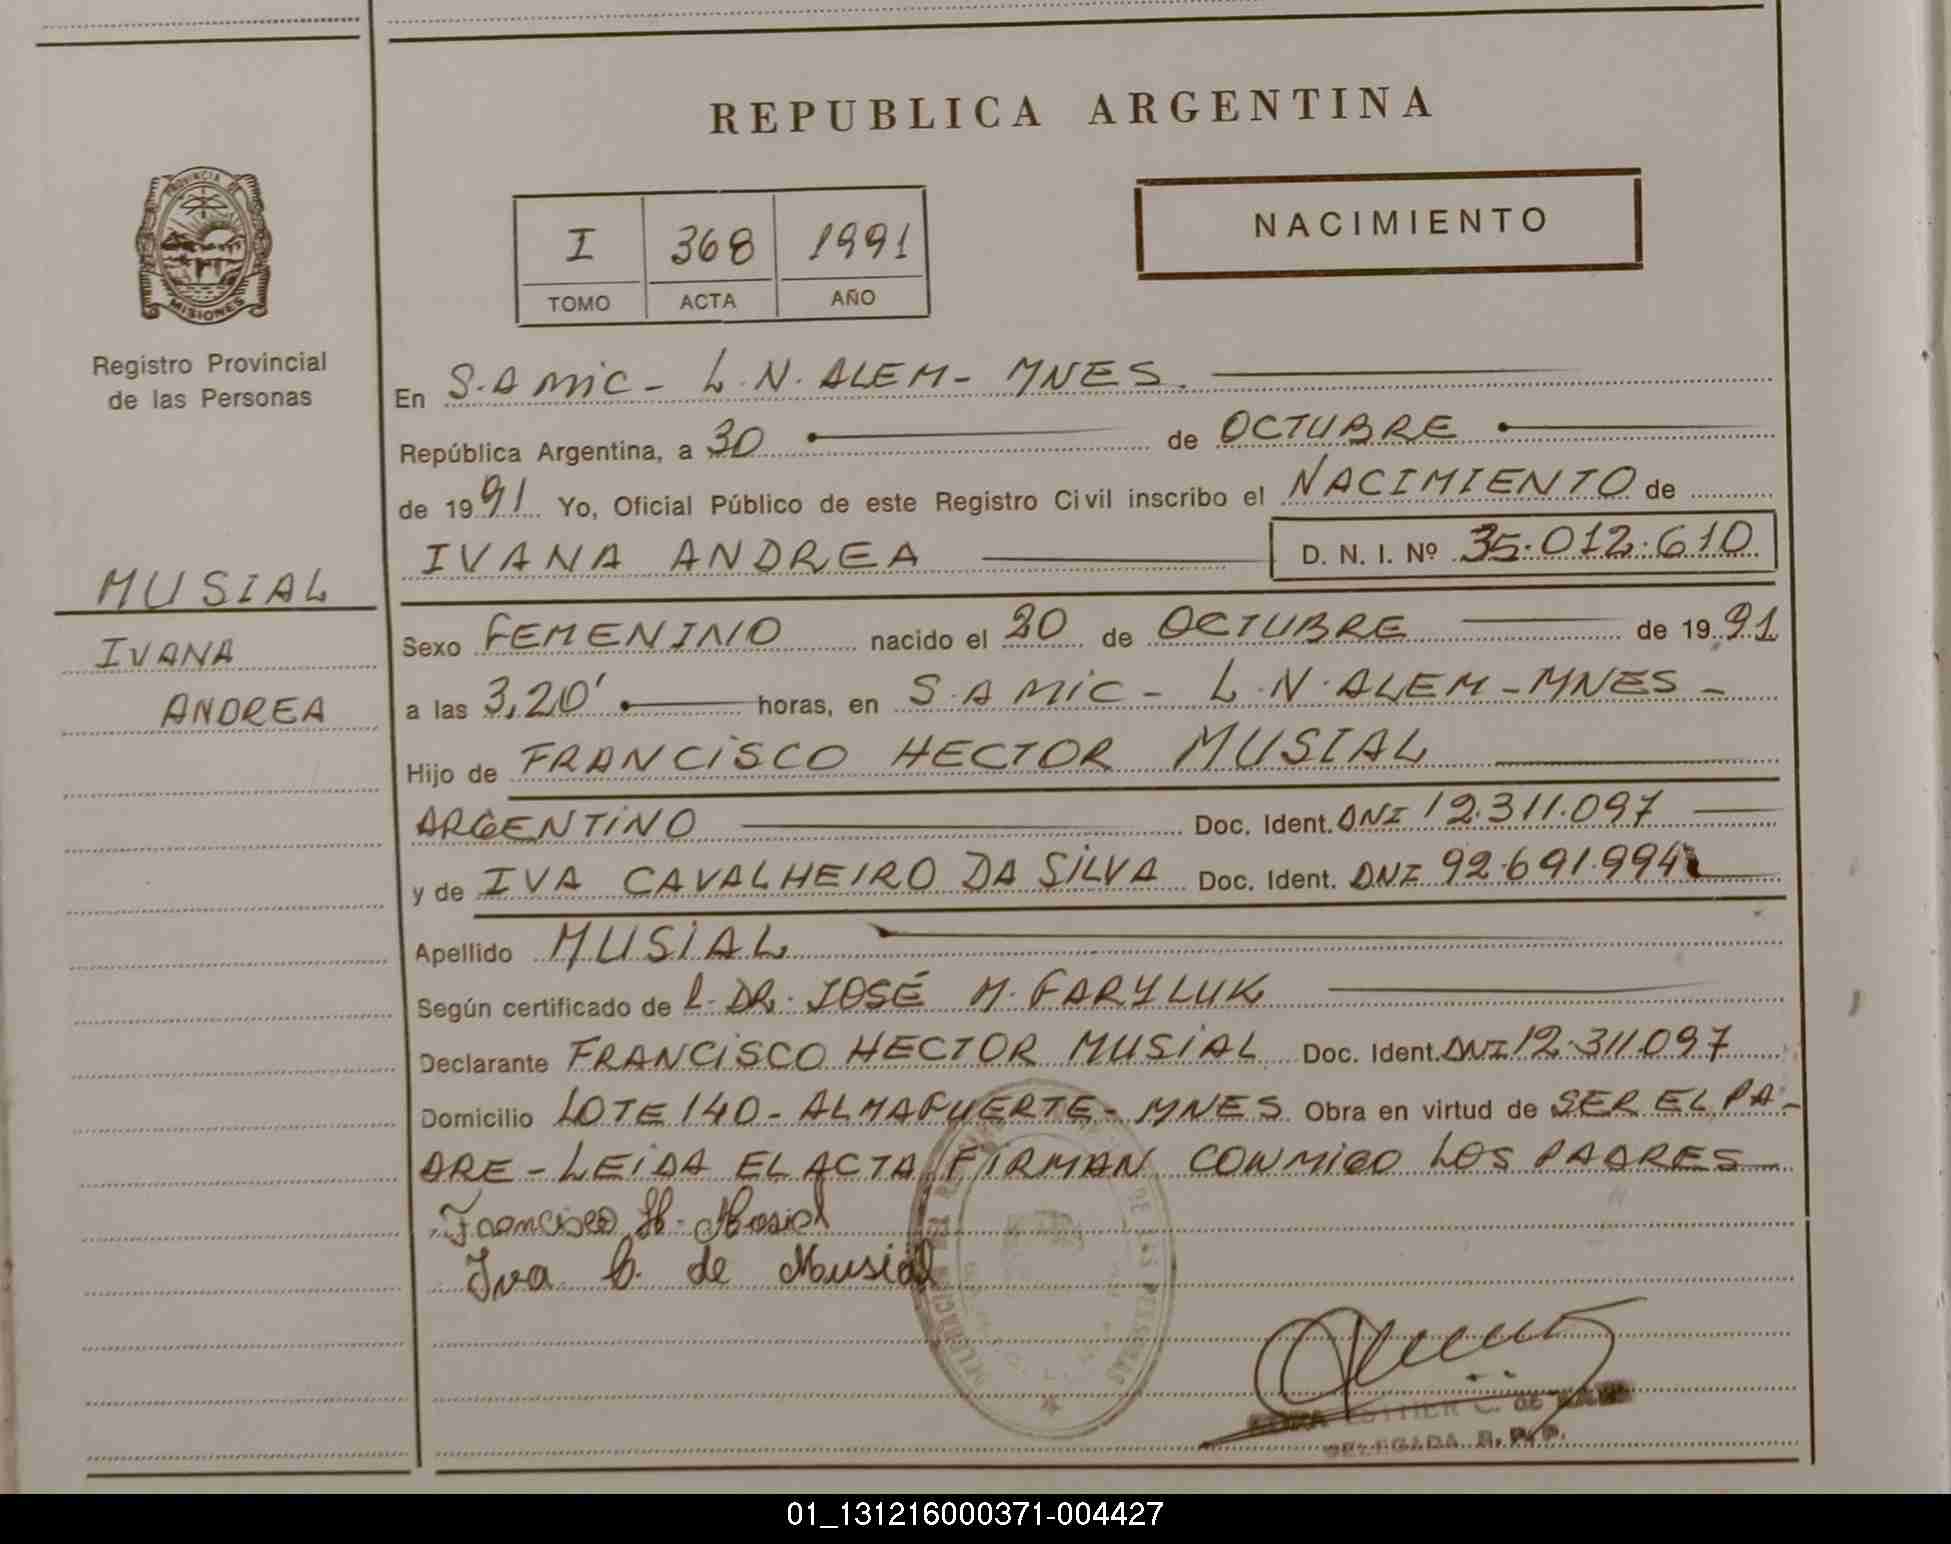 REPUBLICA ARGENTINA
PROVINCIA DE
MISIONES
Registro Provincial
de las Personas
NACIMIENTO
I 368 1991
TOMO ACTA AÑO
En S.A MIC - L.N. ALEM - MNES.
República Argentina, a 30 de OCTUBRE
de 1991 Yo, Oficial Público de este Registro Civil inscribo el NACIMIENTO de
IVANA ANDREA D. N. I. Nº 35.012.610
MUSIAL
IVANA
ANDREA
Sexo FEMENINO nacido el 20 de OCTUBRE de 1991
a las 3,20' horas, en S.A MIC - L.N. ALEM - MNES -
Hijo de FRANCISCO HECTOR MUSIAL
ARGENTINO Doc. Ident. DNI 12.311.097
y de IVA CAVALHEIRO DA SILVA Doc. Ident. DNI 92.691.994
Apellido MUSIAL
Según certificado de L. DR. JOSÉ M. FARYLUK
Declarante FRANCISCO HECTOR MUSIAL Doc. Ident. DNI 12.311.097
Domicilio LOTE 140 - ALMAFUERTE - MNES Obra en virtud de SER EL PA-
DRE - LEIDA EL ACTA FIRMAN CONMIGO LOS PADRES
Francisco H. Musial
Iva C. de Musial
ESTHER C. de
DELEGADA R. P. P.
01_131216000371-004427